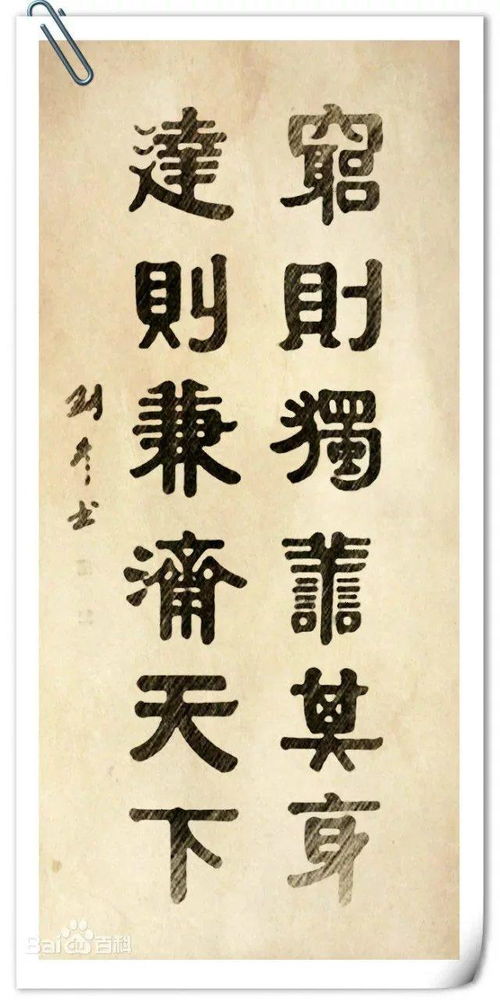 窮則獨善其身
達則兼濟天下
劉冬书
Bai百科